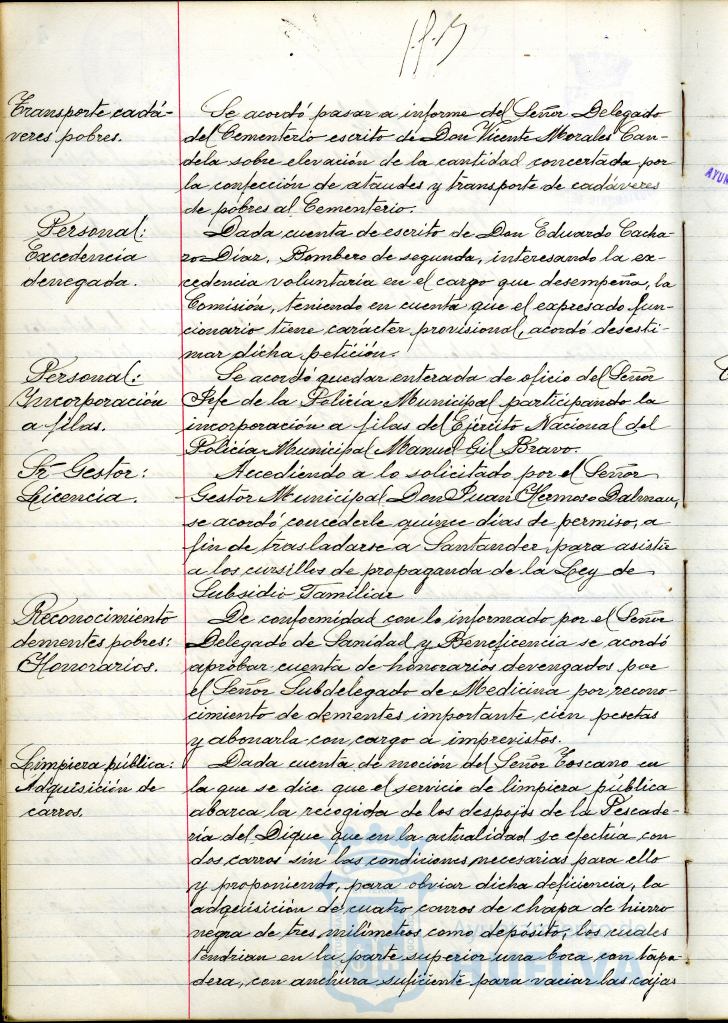 Transporte cadá-
veres pobres.
Se acordó pasar a informe del Señor Delegado
del Cementerio escrito de Don Vicente Morales Can-
dela sobre elevación de la cantidad concertada por
la confección de ataudes y transporte de cadáveres
de pobres al Cementerio.
Personal:
Excedencia
denegada.
Dada cuenta de escrito de Don Eduardo Cacha-
ro Díaz, Bombero de segunda, interesando la ex-
cedencia voluntaria en el cargo que desempeña, la
Comisión, teniendo en cuenta que el expresado fun-
cionario tiene carácter provisional, acordó desesti-
mar dicha petición.
Personal:
Incorporación
a filas.
Se acordó quedar enterada de oficio del Señor
Jefe de la Policía Municipal participando la
incorporación a filas del Ejército Nacional del
Policía Municipal Manuel Gil Bravo.
Sr. Gestor:
Licencia.
Accediendo a lo solicitado por el Señor
Gestor Municipal Don Juan Hermoso Dalmau,
se acordó concederle quince días de permiso, a
fin de trasladarse a Santander, para asistir
a los cursillos de propaganda de la Ley de
Subsidio Familiar
Reconocimiento
dementes pobres:
Honorarios.
De conformidad con lo informado por el Señor
Delegado de Sanidad y Beneficencia se acordó
aprobar cuenta de honorarios devengados por
el Señor Subdelegado de Medicina por recono-
cimiento de dementes importante cien pesetas
y abonarla con cargo a imprevistos.
Limpiera pública:
Adquisición de
carros.
Dada cuenta de moción del Señor Toscano en
la que se dice que el servicio de limpiera pública
abarca la recogida de los despojos de la Pescade-
ría del Dique que en la actualidad se efectúa con
dos carros sin las condiciones necesarias para ello
y proponiendo, para obviar dicha deficiencia, la
adquisición de cuatro carros de chapa de hierro
negra de tres milímetros como depósito, los cuales
tendrían en la parte superior una boca con tapa-
dera, con anchura suficiente para vaciar las cajas
HUELVA
AYUN